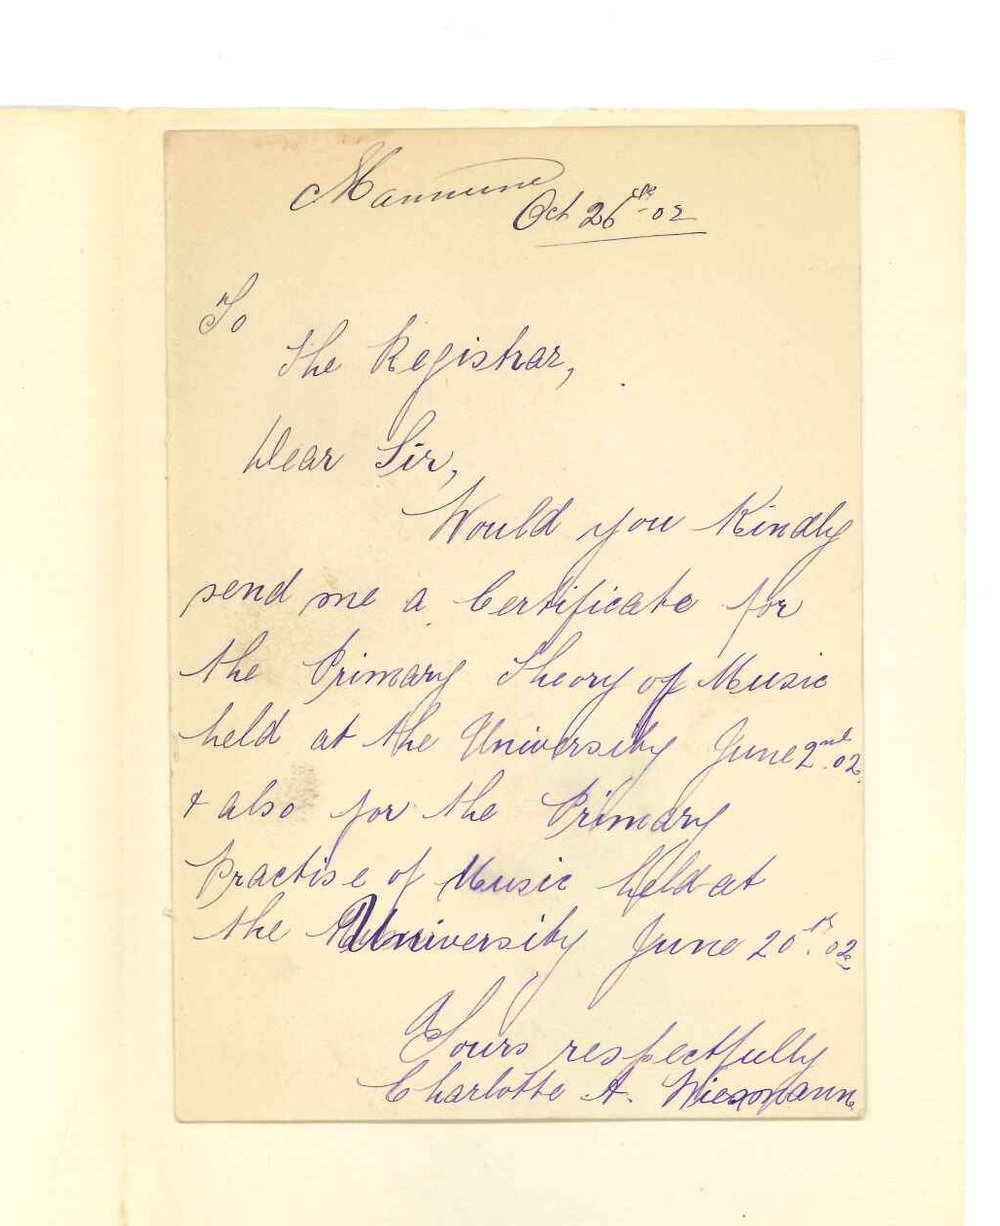 Mannum
Oct 26th-02
To
The Registrar,
Dear Sir,
Would you Kindly
send me a Certificate for
the Primary Theory of Music
held at the University June 2nd. 02.
& also for the Primary
Practise of Music held at
the University June 20th. 02
Yours respectfully
Charlotte A.